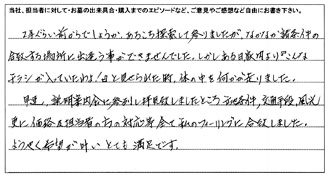 当社、担当者に対して・お墓の出来具合・購入までのエピソードなど、ご意見やご感想など自由にお書き下さい。
2年くらい前からでしょうか、あちこち探索して参りましたが、なかなか諸条件の
合致する場所に出逢う事ができませんでした。しかしある日家内より"こんな
チラシが入っていたわよ!"と見せられた時、体の中を何かが走りました。
早速、説明案内会に参列し拝見致しましたところ 立地条件、交通手段、風光、
更に価格及担当者の方の対応等 全て私のフィーリングに合致しました。
ようやく希望が叶い とても満足です。